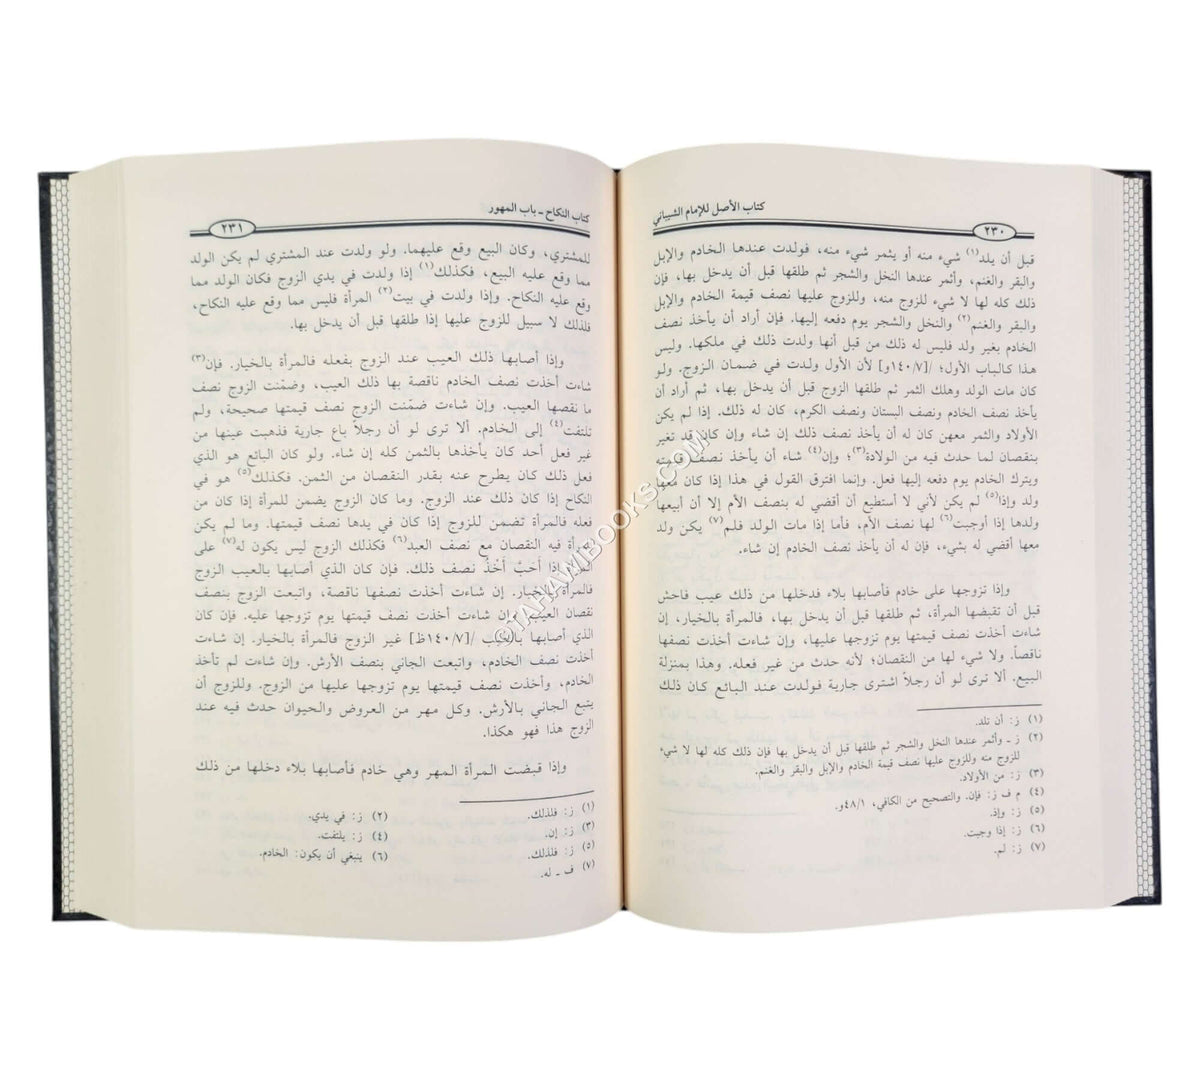 كتاب الأصل للإمام الشيباني
٢٣٠
قبل أن يلد(١) شيء منه أو يثمر شيء منه، فولدت عندها الخادم والإبل
والبقر والغنم، وأثمر عندها النخل والشجر ثم طلقها قبل أن يدخل بها، فإن
ذلك كله لها لا شيء للزوج منه، وللزوج عليها نصف قيمة الخادم والإبل
والبقر والغنم(٢) والنخل والشجر يوم دفعه إليها. فإن أراد أن يأخذ نصف
الخادم بغير ولد فليس له ذلك من قبل أنها ولدت ذلك في ملكها. وليس
هذا كالباب الأول؛ /[١٤٠/٧و] لأن الأول ولدت في ضمان الزوج. ولو
كان مات الولد وهلك الثمر ثم طلقها الزوج قبل أن يدخل بها، ثم أراد أن
يأخذ نصف الخادم ونصف البستان ونصف الكرم، كان له ذلك. إذا لم يكن
الأولاد والثمر معهن كان له أن يأخذ نصف ذلك إن شاء وإن كان قد تغير
بنقصان لما حدث فيه من الولادة(٣)؛ وإن(٤) شاء أن يأخذ نصف قيمته
ويترك الخادم يوم دفعه إليها فعل. وإنما افترق القول في هذا إذا كان معها
ولد وإذا(٥) لم يكن لأني لا أستطيع أن أقضي له بنصف الأم إلا أن أتبعها
ولدها إذا أوجبت(٦) لها نصف الأم، فأما إذا مات الولد فلم(٧) يكن ولد
معها أقضي له بشيء، فإن له أن يأخذ نصف الخادم إن شاء.
وإذا تزوجها على خادم فأصابها بلاء فدخلها من ذلك عيب فاحش
قبل أن تقبضها المرأة، ثم طلقها قبل أن يدخل بها، فالمرأة بالخيار، إن
شاءت أخذت نصف قيمتها يوم تزوجها عليها، وإن شاءت أخذت نصفها
ناقصاً. ولا شيء لها من النقصان؛ لأنه حدث من غير فعله. وهذا بمنزلة
البيع. ألا ترى لو أن رجلاً اشترى جارية فولدت عند البائع كان ذلك
(١) ز: أن تلد.
(٢) ز ـ وأثمر عندها النخل والشجر ثم طلقها قبل أن يدخل بها فإن ذلك كله لها لا شيء
للزوج منه وللزوج عليها نصف قيمة الخادم والإبل والبقر والغنم.
(٣) ز: من الأولاد.
(٤) م ف ز: فإن. والتصحيح من الكافي، ٤٨/١و.
(٥) ز: وإذ.
(٦) ز: إذا وجبت.
(٧) ز: لم.
كتاب النكاح - باب المهور
٢٣١
للمشتري، وكان البيع وقع عليهما. ولو ولدت عند المشتري لم يكن الولد
مما وقع عليه البيع، فكذلك(١) إذا ولدت في يدي الزوج فكان الولد مما
وقع عليه النكاح. وإذا ولدت في بيت(٢) المرأة فليس مما وقع عليه النكاح،
فلذلك لا سبيل للزوج عليها إذا طلقها قبل أن يدخل بها.
وإذا أصابها ذلك العيب عند الزوج بفعله فالمرأة بالخيار. فإن(٣)
شاءت أخذت نصف الخادم ناقصة بها ذلك العيب، وضمّنت الزوج نصف
ما نقصها العيب. وإن شاءت ضمّنت الزوج نصف قيمتها صحيحة، ولم
تلتفت(٤) إلى الخادم. ألا ترى لو أن رجلاً باع جارية فذهبت عينها من
غير فعل أحد كان يأخذها بالثمن كله إن شاء. ولو كان البائع هو الذي
فعل ذلك كان يطرح عنه بقدر النقصان من الثمن. فكذلك(٥) هو في
النكاح إذا كان ذلك عند الزوج. وما كان الزوج يضمن للمرأة إذا كان من
فعله فالمرأة تضمن للزوج إذا كان في يدها نصف قيمتها. وما لم يكن
للمرأة فيه النقصان مع نصف العبد(٦) فكذلك الزوج ليس يكون له(٧) على
إذا أحَبّ أَخْذُ نصف ذلك. فإن كان الذي أصابها بالعيب الزوج
فالمرأة بالخيار. إن شاءت أخذت نصفها ناقصة، واتبعت الزوج بنصف
نقصان العيب. وإن شاءت أخذت نصف قيمتها يوم تزوجها عليه. فإن كان
الذي أصابها بالعيب /[١٤٠/٧ظ] غير الزوج فالمرأة بالخيار. إن شاءت
أخذت نصف الخادم، واتبعت الجاني بنصف الأرش. وإن شاءت لم تأخذ
الخادم، وأخذت نصف قيمتها يوم تزوجها عليها من الزوج. وللزوج أن
يتبع الجاني بالأرش. وكل مهر من العروض والحيوان حدث فيه عند
الزوج هذا فهو هكذا.
وإذا قبضت المرأة المهر وهي خادم فأصابها بلاء دخلها من ذلك
(١) ز: فلذلك. (٢) ز: في يدي.
(٣) ز: إن. (٤) ز: يلتفت.
(٥) ز: فلذلك. (٦) ينبغي أن يكون: الخادم.
(٧) ف ـ له.
©TAHAWIBOOKS.COM